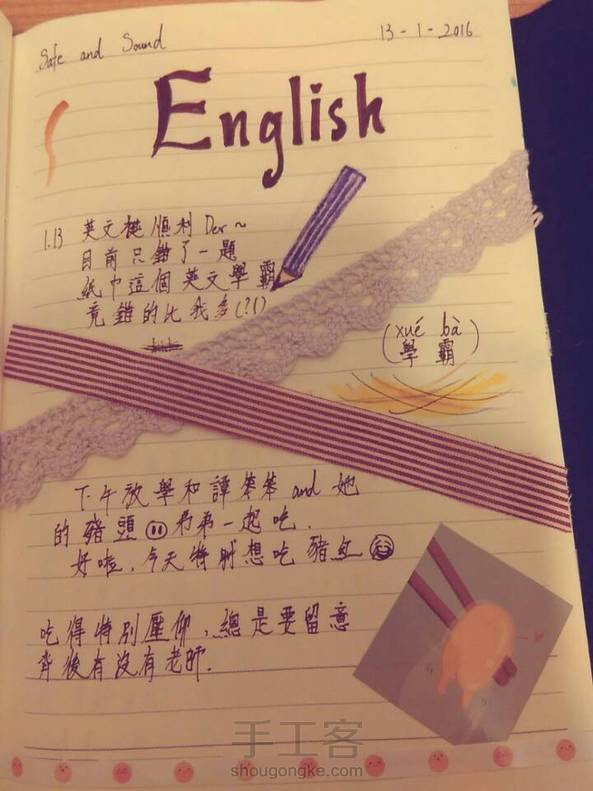 Safe and Sound
13-1-2016
English
1.13 英文挺順利Der~
目前只錯了一題
紙巾這個英文學霸
竟錯的比我多(?!)
(xué bà)
學霸
下午放學和譚笨笨and她
的豬頭弟弟一起吃.
好啦,今天特別想吃豬紅
吃得特別壓抑,總是要留意
背後有沒有老師.
手工客
shougongke.com